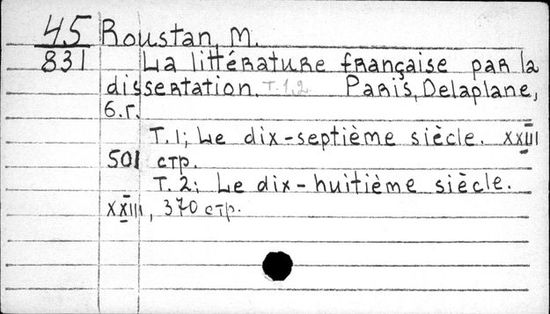 45
831
Roustan, M.
La littérature française par la
dissertation. T.1,2 Paris, Delaplane,
б.г.
T. 1; Le dix-septième siècle. XXIII
501 стр.
T. 2: Le dix-huitième siècle.
XXIII, 370 стр.